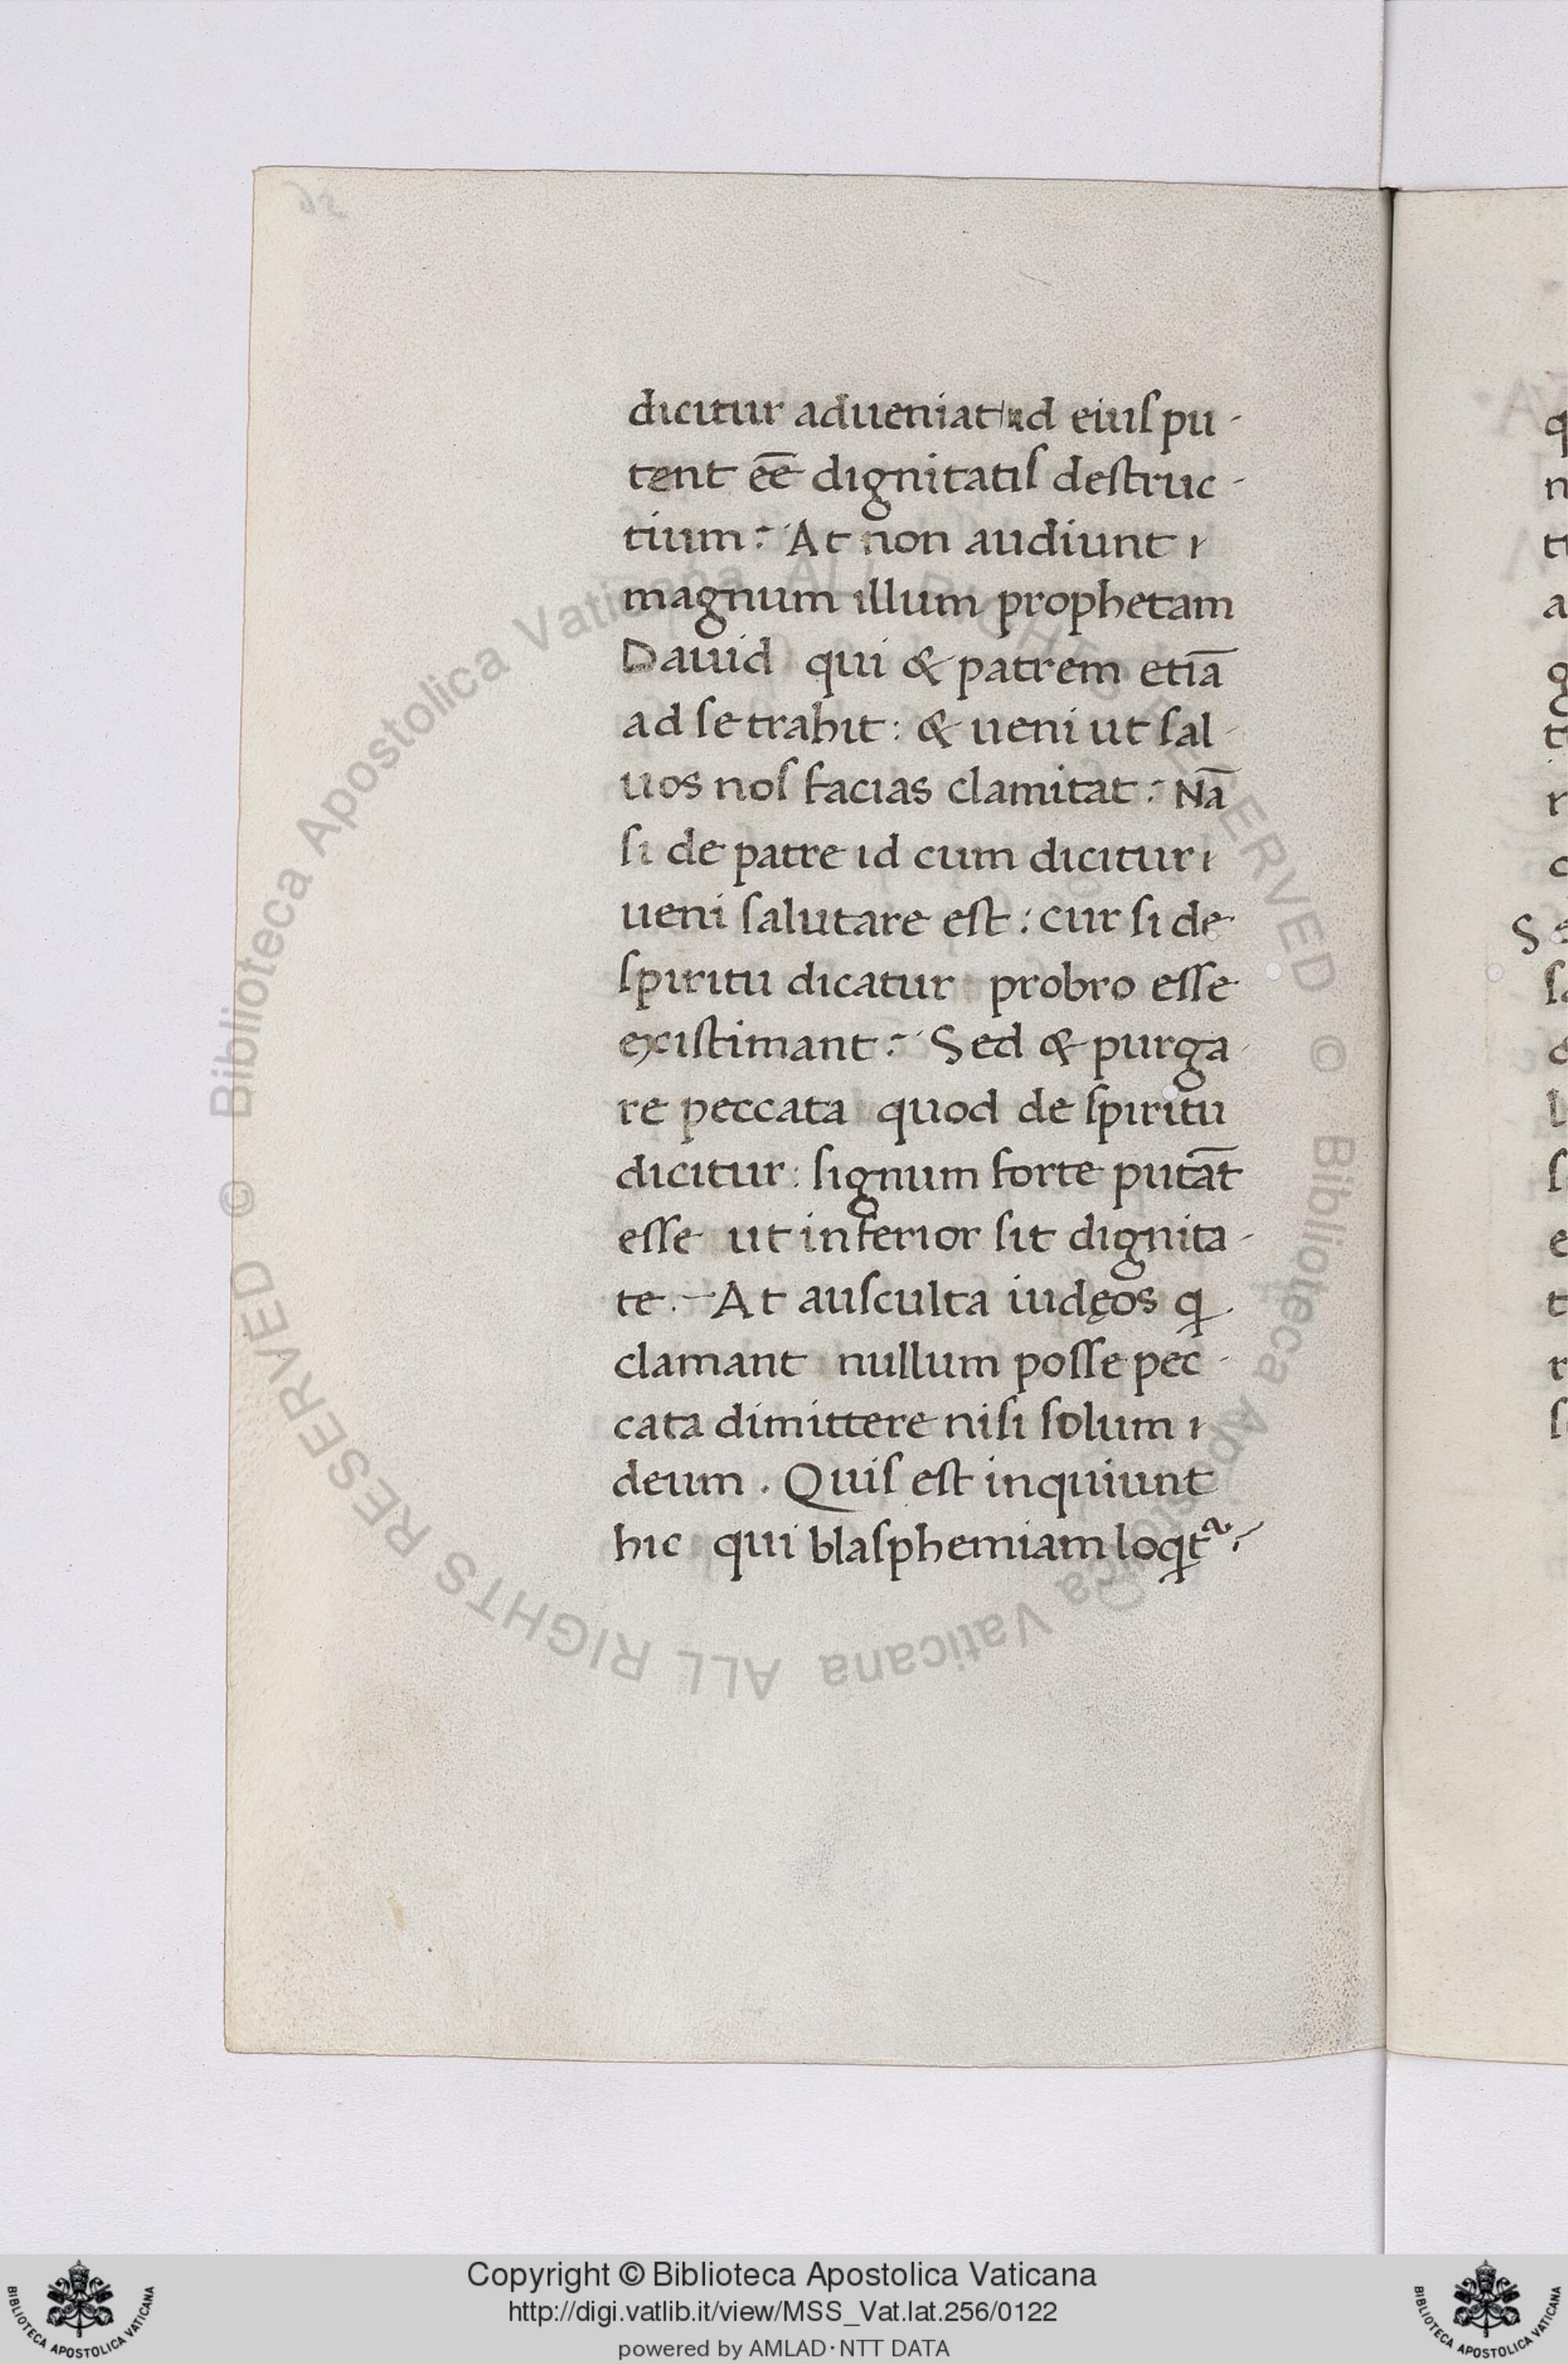 dicitur adueniat id eiuſ pu-
tent ee̅ dignitatiſ deſtruc-
tium: At non audiunt
magnum illum prophetam
Dauid qui & patrem etiā
ad ſe trahit: & ueni ut ſal
uos noſ facias clamitat: Nā
ſi de patre id cum dicitur
ueni ſalutare eſt: cur ſi de
ſpiritu dicatur probro eſſe
exiſtimant: Sed & purga
re peccata quod de ſpiritu
dicitur: ſignum forte putāt
eſſe ut inferior ſit dignita-
te. At auſculta iudęos ꝗ
clamant nullum poſſe pec-
cata dimittere niſi ſolum
deum. Quiſ eſt inquiunt
hic qui blaſphemiam loꝗt᷑:
q
n
a
g
S
e
r
© Biblioteca Apostolica Vaticana ALL RIGHTS RESERVED © Biblioteca Apostolica Vaticana ALL RIGHTS RESERVED
Copyright © Biblioteca Apostolica Vaticana
http://digi.vatlib.it/view/MSS_Vat.lat.256/0122
powered by AMLAD·NTT DATA
BIBLIOTECA APOSTOLICA VATICANA
BIBLIOTECA APOSTOLICA VATICANA